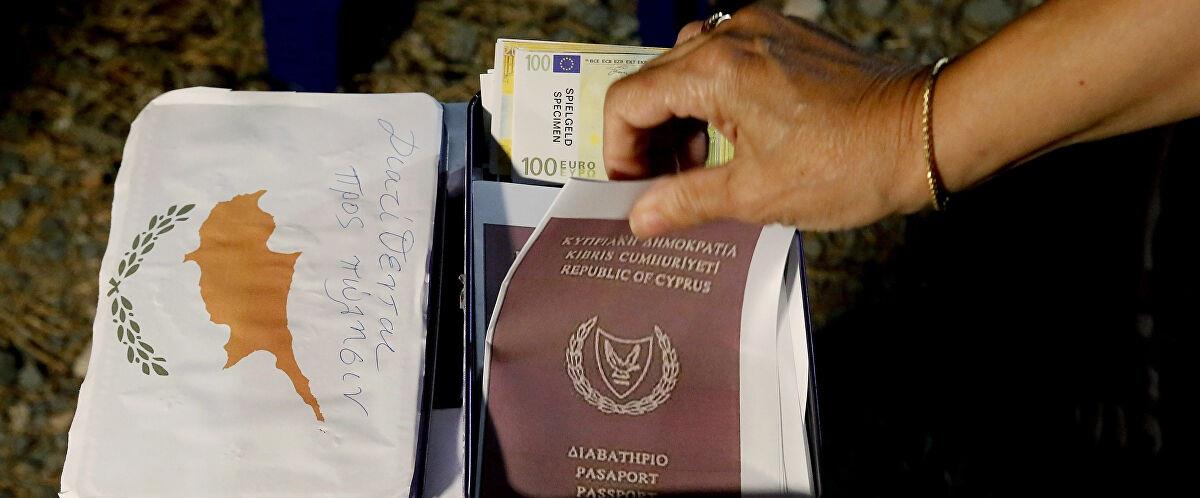 Διατίθενται
προς πώληση
100
BCE ECB EZB EKT EKP
SPIELGELD
SPECIMEN
100 EURO
ΕΥΡΩ
ΚΥΠΡΙΑΚΗ ΔΗΜΟΚΡΑΤΙΑ
KIBRIS CUMHURİYETİ
REPUBLIC OF CYPRUS
ΔΙΑΒΑΤΗΡΙΟ
PASAPORT
PASSPORT